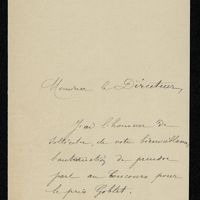 Monsieur le Directeur,
J'ai l'honneur de
solliciter, de votre bienveillance
l'autorisation de prendre
part au Concours pour
le prix Goblet.